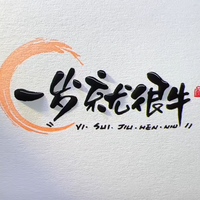 一岁就很牛
"YI. SUI. JIU. HEN. NIU"